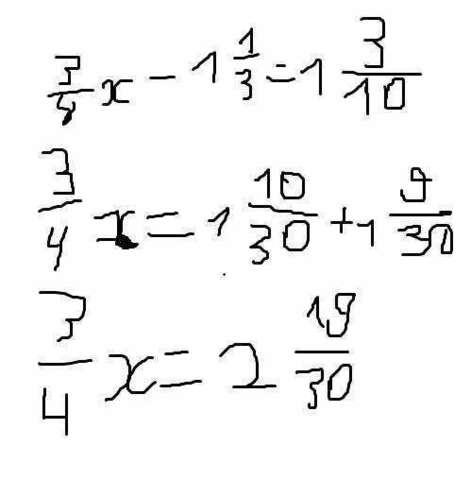 3/4 x - 1 1/3 = 1 3/10
3/4 x = 1 10/30 + 1 9/30
3/4 x = 2 19/30